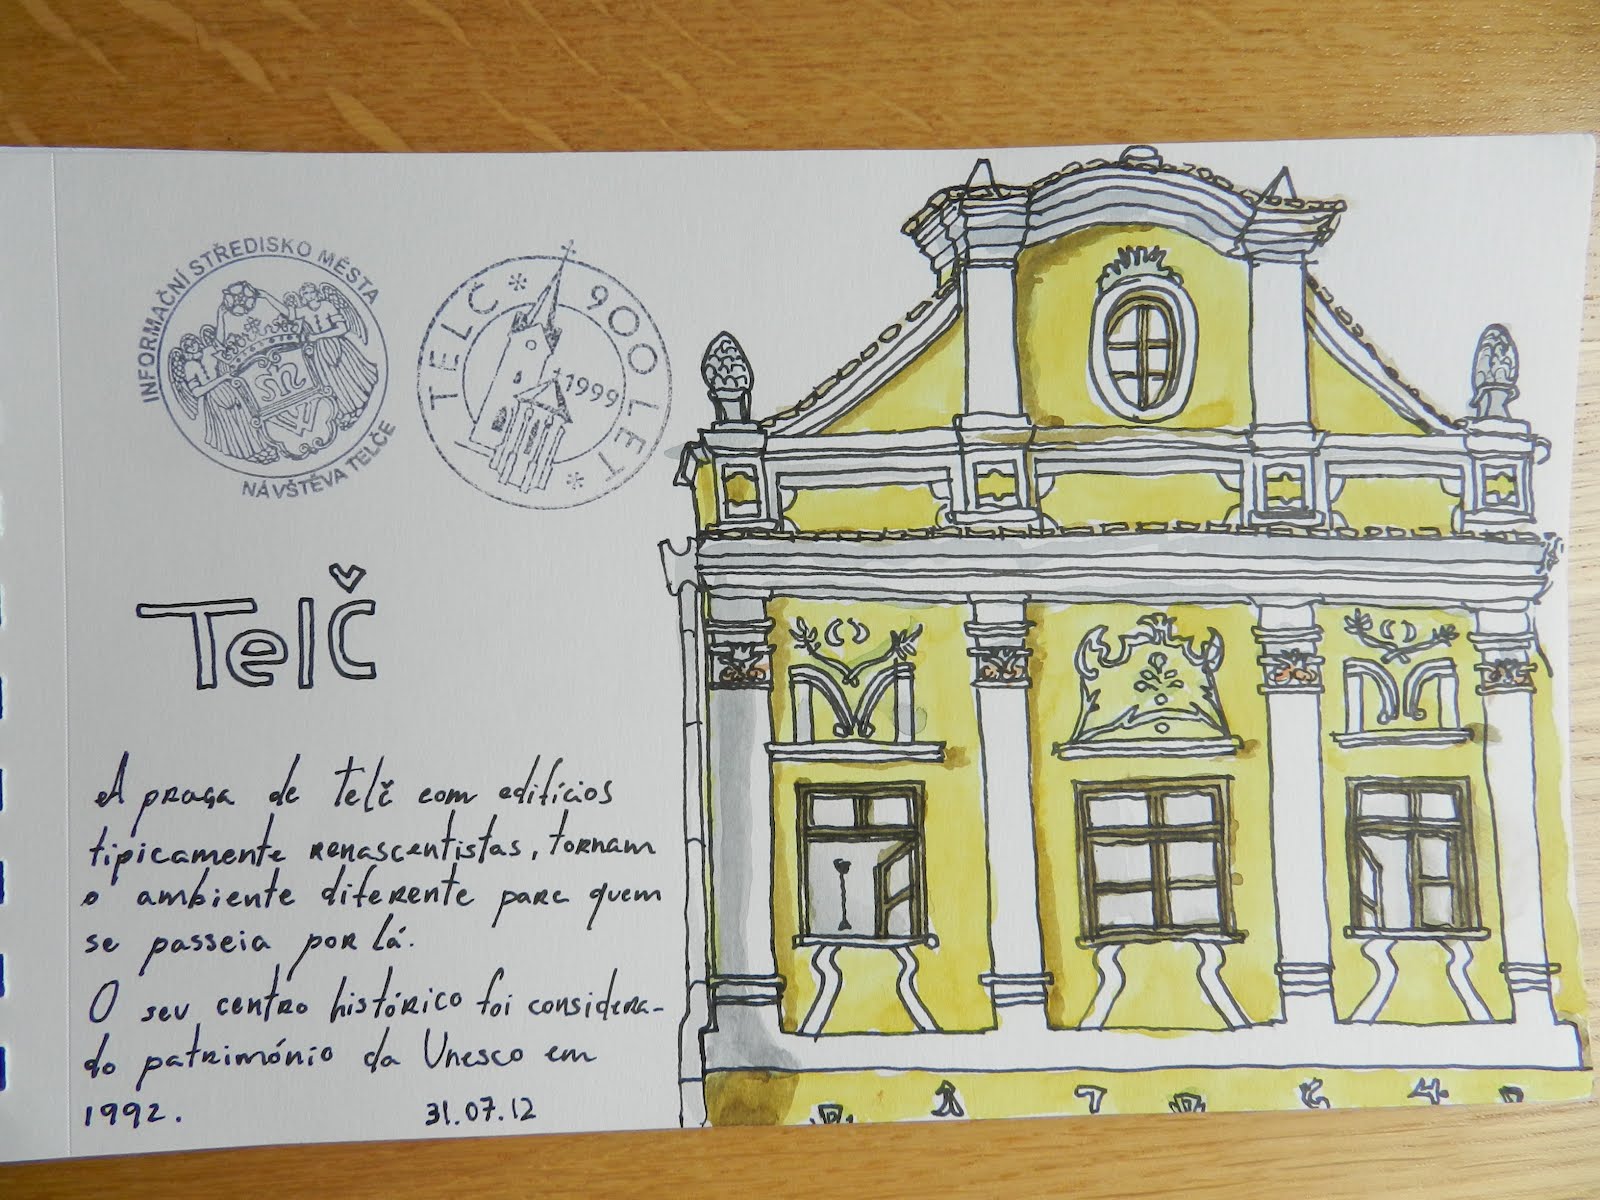 INFORMAČNÍ STŘEDISKO MĚSTA
NÁVŠTĚVA TELČE
TELČ * 900 LET *
1999
Telč
A praça de Telč com edifícios
tipicamente renascentistas, tornam
o ambiente diferente para quem
se passeia por lá.
O seu centro histórico foi considera-
do património da Unesco em
1992.
31.07.12